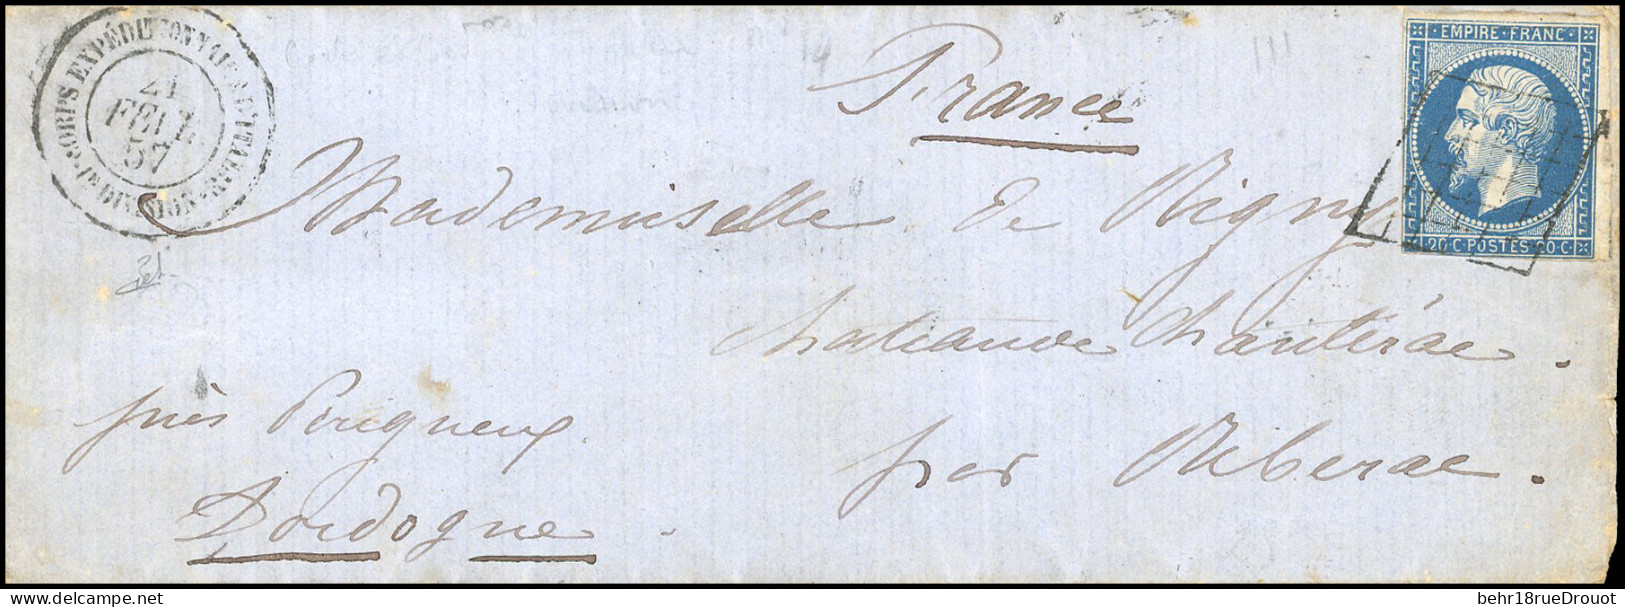 CORPS EXPÉDITIONNAIRE D'ITALIE
1e DIVISION
21
FEVR.
57
EMPIRE FRANC
20 C POSTES 20 C
France
Mademoiselle de Vigny
chateau de Chantérac.
par Riberac.
près Périgueux.
Dordogne.
behr18rueDrouot